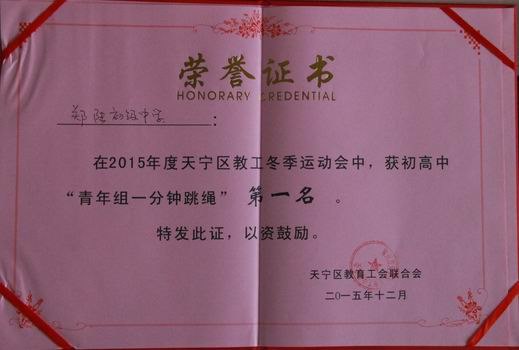 荣誉证书
HONORARY CREDENTIAL
郑陆初级中学：
在2015年度天宁区教工冬季运动会中，获初高中
“青年组一分钟跳绳” 第一名 。
特发此证，以资鼓励。
天宁区教育工会联合会
二〇一五年十二月